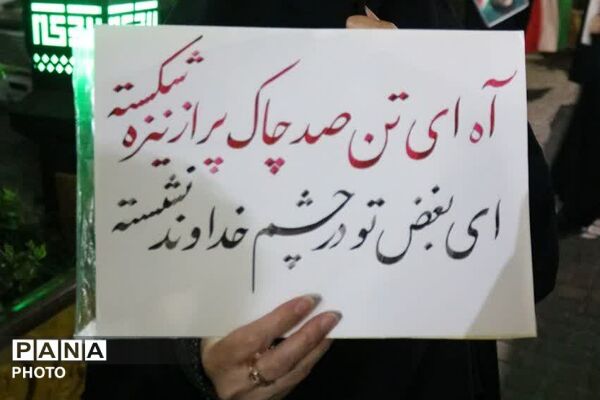 آه ای تن صد چاک پر از نیزه شکسته
ای بغض تو در چشم خداوند نشسته
PANA
PHOTO